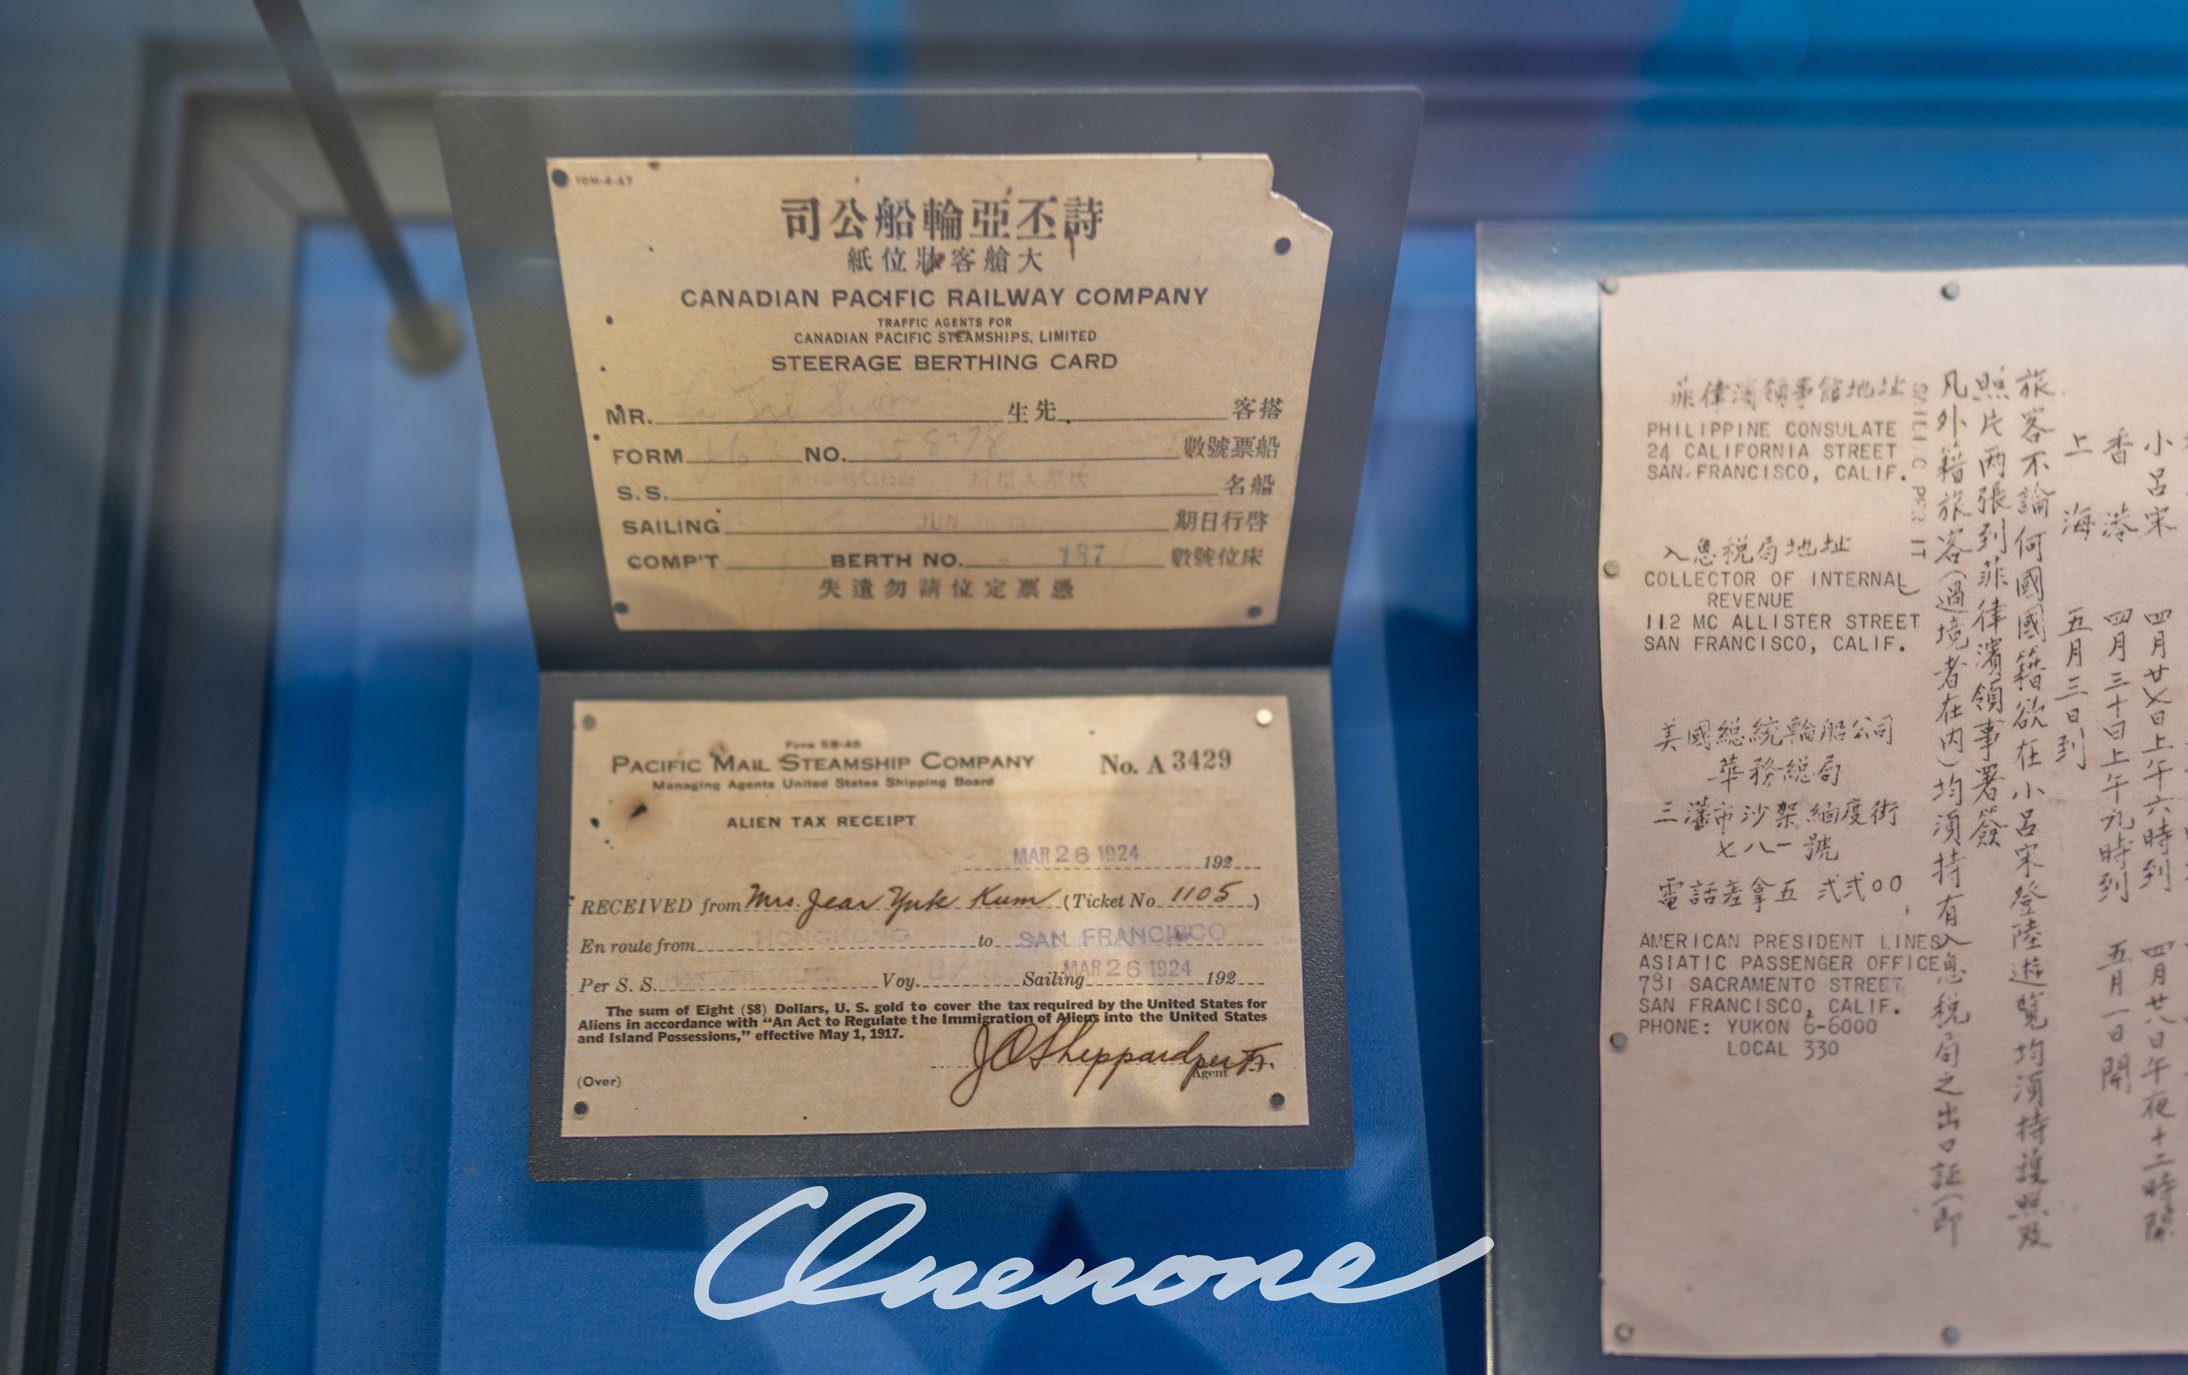 10M-6-27
司公船輪亞丕詩
紙位牀客艙大
CANADIAN PACIFIC RAILWAY COMPANY
TRAFFIC AGENTS FOR
CANADIAN PACIFIC STEAMSHIPS, LIMITED
STEERAGE BERTHING CARD
MR. 生先 客搭
FORM NO. 58278 數號票船
S.S. 名船
SAILING JUN 期日行啓
COMP'T BERTH NO. 137 數號位床
失遺勿請位定票憑
Form 5B-A5
PACIFIC MAIL STEAMSHIP COMPANY No. A 3429
Managing Agents United States Shipping Board
ALIEN TAX RECEIPT
MAR 26 1924 192
RECEIVED from Mrs. Jear Yuk Kum (Ticket No 1105)
En route from HONGKONG to SAN FRANCISCO
Per S. S. Voy. Sailing MAR 26 1924 192
The sum of Eight ($8) Dollars, U. S. gold to cover the tax required by the United States for
Aliens in accordance with "An Act to Regulate the Immigration of Aliens into the United States
and Island Possessions," effective May 1, 1917.
J O Sheppard per
Agent
(Over)
小呂宋 四月廿乂日上午六時到 四月廿八日午夜十二時開
香港 四月三十日上午九時到 五月一日開
上海 五月三日到
旅客不論何國國籍欲在小呂宋登陸遊覽均須持護照及
照片两張到菲律濱領事署簽
凡外籍旅客(過境者在内)均須持有入息税局之出口証(即
SAILING PERMIT)
菲律濱領事館地址
PHILIPPINE CONSULATE
24 CALIFORNIA STREET
SAN FRANCISCO, CALIF.
入息税局地址
COLLECTOR OF INTERNAL
REVENUE
112 MC ALLISTER STREET
SAN FRANCISCO, CALIF.
美國総統輪船公司
華務総局
三藩市沙架緬度街
七八一號
電話差拿五 弍弍〇〇
AMERICAN PRESIDENT LINES
ASIATIC PASSENGER OFFICE
781 SACRAMENTO STREET
SAN FRANCISCO, CALIF.
PHONE: YUKON 6-6000
LOCAL 330